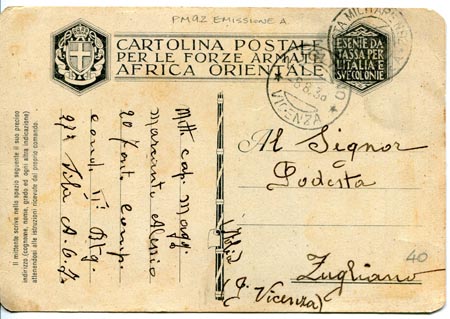 PM92 EMISSIONE A
CARTOLINA POSTALE
PER LE FORZE ARMATE
AFRICA ORIENTALE
ESENTE DA
TASSA PER
L'ITALIA E
SVE COLONIE
POSTA MILITARE
ZUGLIANO
VICENZA
Il mittente scriva nello spazio seguente il suo preciso
indirizzo (cognome, nome, grado ed ogni altra indicazione)
attenendosi alle istruzioni ricevute dal proprio comando.
Mitt cap. Magg.
Alessio
20
A. O.
Al Signor
Podestà
Zugliano
(p. Vicenza)
Italia
40